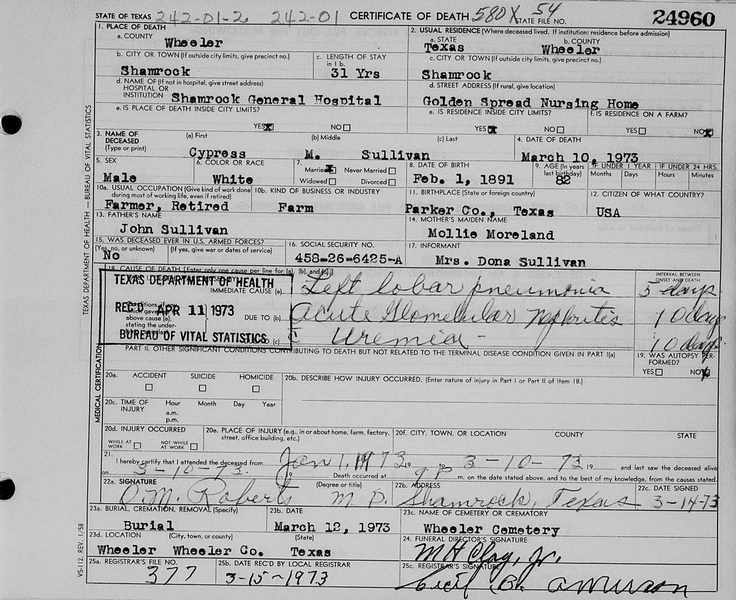 STATE OF TEXAS 242-01-2 242-01 CERTIFICATE OF DEATH 580X 54 STATE FILE NO. 24960
1. PLACE OF DEATH 2. USUAL RESIDENCE (Where deceased lived. If institution: residence before admission)
a. COUNTY a. STATE b. COUNTY
Wheeler Texas Wheeler
b. CITY OR TOWN (If outside city limits, give precinct no.) c. LENGTH OF STAY in 1 b. c. CITY OR TOWN (If outside city limits, give precinct no.)
Shamrock 31 Yrs Shamrock
d. NAME OF (If not in hospital, give street address) HOSPITAL OR INSTITUTION d. STREET ADDRESS (If rural, give location)
Shamrock General Hospital Golden Spread Nursing Home
e. IS PLACE OF DEATH INSIDE CITY LIMITS? e. IS RESIDENCE INSIDE CITY LIMITS? f. IS RESIDENCE ON A FARM?
YES X NO YES X NO YES NO X
3. NAME OF DECEASED (Type or print) (a) First (b) Middle (c) Last 4. DATE OF DEATH
Cypress M. Sullivan March 10, 1973
5. SEX 6. COLOR OR RACE 7. Married X Never Married Widowed Divorced 8. DATE OF BIRTH 9. AGE (In years last birthday) IF UNDER 1 YEAR Months Days IF UNDER 24 HRS. Hours Minutes
Male White Feb. 1, 1891 82
10a. USUAL OCCUPATION (Give kind of work done during most of working life, even if retired) 10b. KIND OF BUSINESS OR INDUSTRY 11. BIRTHPLACE (State or foreign country) 12. CITIZEN OF WHAT COUNTRY?
Farmer, Retired Farm Parker Co., Texas USA
13. FATHER'S NAME 14. MOTHER'S MAIDEN NAME
John Sullivan Mollie Moreland
15. WAS DECEASED EVER IN U.S. ARMED FORCES? (Yes, no, or unknown) (If yes, give war or dates of service) 16. SOCIAL SECURITY NO. 17. INFORMANT
No 458-26-6425-A Mrs. Dona Sullivan
18. CAUSE OF DEATH (Enter only one cause per line for (a), (b), and (c).) INTERVAL BETWEEN ONSET AND DEATH
TEXAS DEPARTMENT OF HEALTH
REC'D APR 11 1973
BUREAU OF VITAL STATISTICS
IMMEDIATE CAUSE (a) Left lobar pneumonia 5 days
above cause (a), stating the under- DUE TO (b) Acute Glomelular Nephritis 10 days
(c) Uremia - 10 days
PART II. OTHER SIGNIFICANT CONDITIONS CONTRIBUTING TO DEATH BUT NOT RELATED TO THE TERMINAL DISEASE CONDITION GIVEN IN PART I(a) 19. WAS AUTOPSY PERFORMED?
YES NO X
20a. ACCIDENT SUICIDE HOMICIDE 20b. DESCRIBE HOW INJURY OCCURRED. (Enter nature of injury in Part I or Part II of item 18.)
20c. TIME OF INJURY Hour Month Day Year
a.m.
p.m.
20d. INJURY OCCURRED WHILE AT WORK NOT WHILE AT WORK 20e. PLACE OF INJURY (e.g., in or about home, farm, factory, street, office building, etc.) 20f. CITY, TOWN, OR LOCATION COUNTY STATE
21. I hereby certify that I attended the deceased from Jan 1, 1973 19 3-10-73 19 and last saw the deceased alive
on 3-10-73. Death occurred at 9 p m. on the date stated above, and to the best of my knowledge, from the causes stated.
22a. SIGNATURE (Degree or title) 22b. ADDRESS 22c. DATE SIGNED
O.M. Roberts M D. Shamrock, Texas 3-14-73
23a. BURIAL, CREMATION, REMOVAL (Specify) 23b. DATE 23c. NAME OF CEMETERY OR CREMATORY
Burial March 12, 1973 Wheeler Cemetery
23d. LOCATION (City, town, or county) (State) 24. FUNERAL DIRECTOR'S SIGNATURE
Wheeler Wheeler Co. Texas M H Clay, Jr.
25a. REGISTRAR'S FILE NO. 25b. DATE REC'D BY LOCAL REGISTRAR 25c. REGISTRAR'S SIGNATURE
377 3-15-1973 Cecil B.
TEXAS DEPARTMENT OF HEALTH — BUREAU OF VITAL STATISTICS
MEDICAL CERTIFICATION
VS-112, REV. 1/58